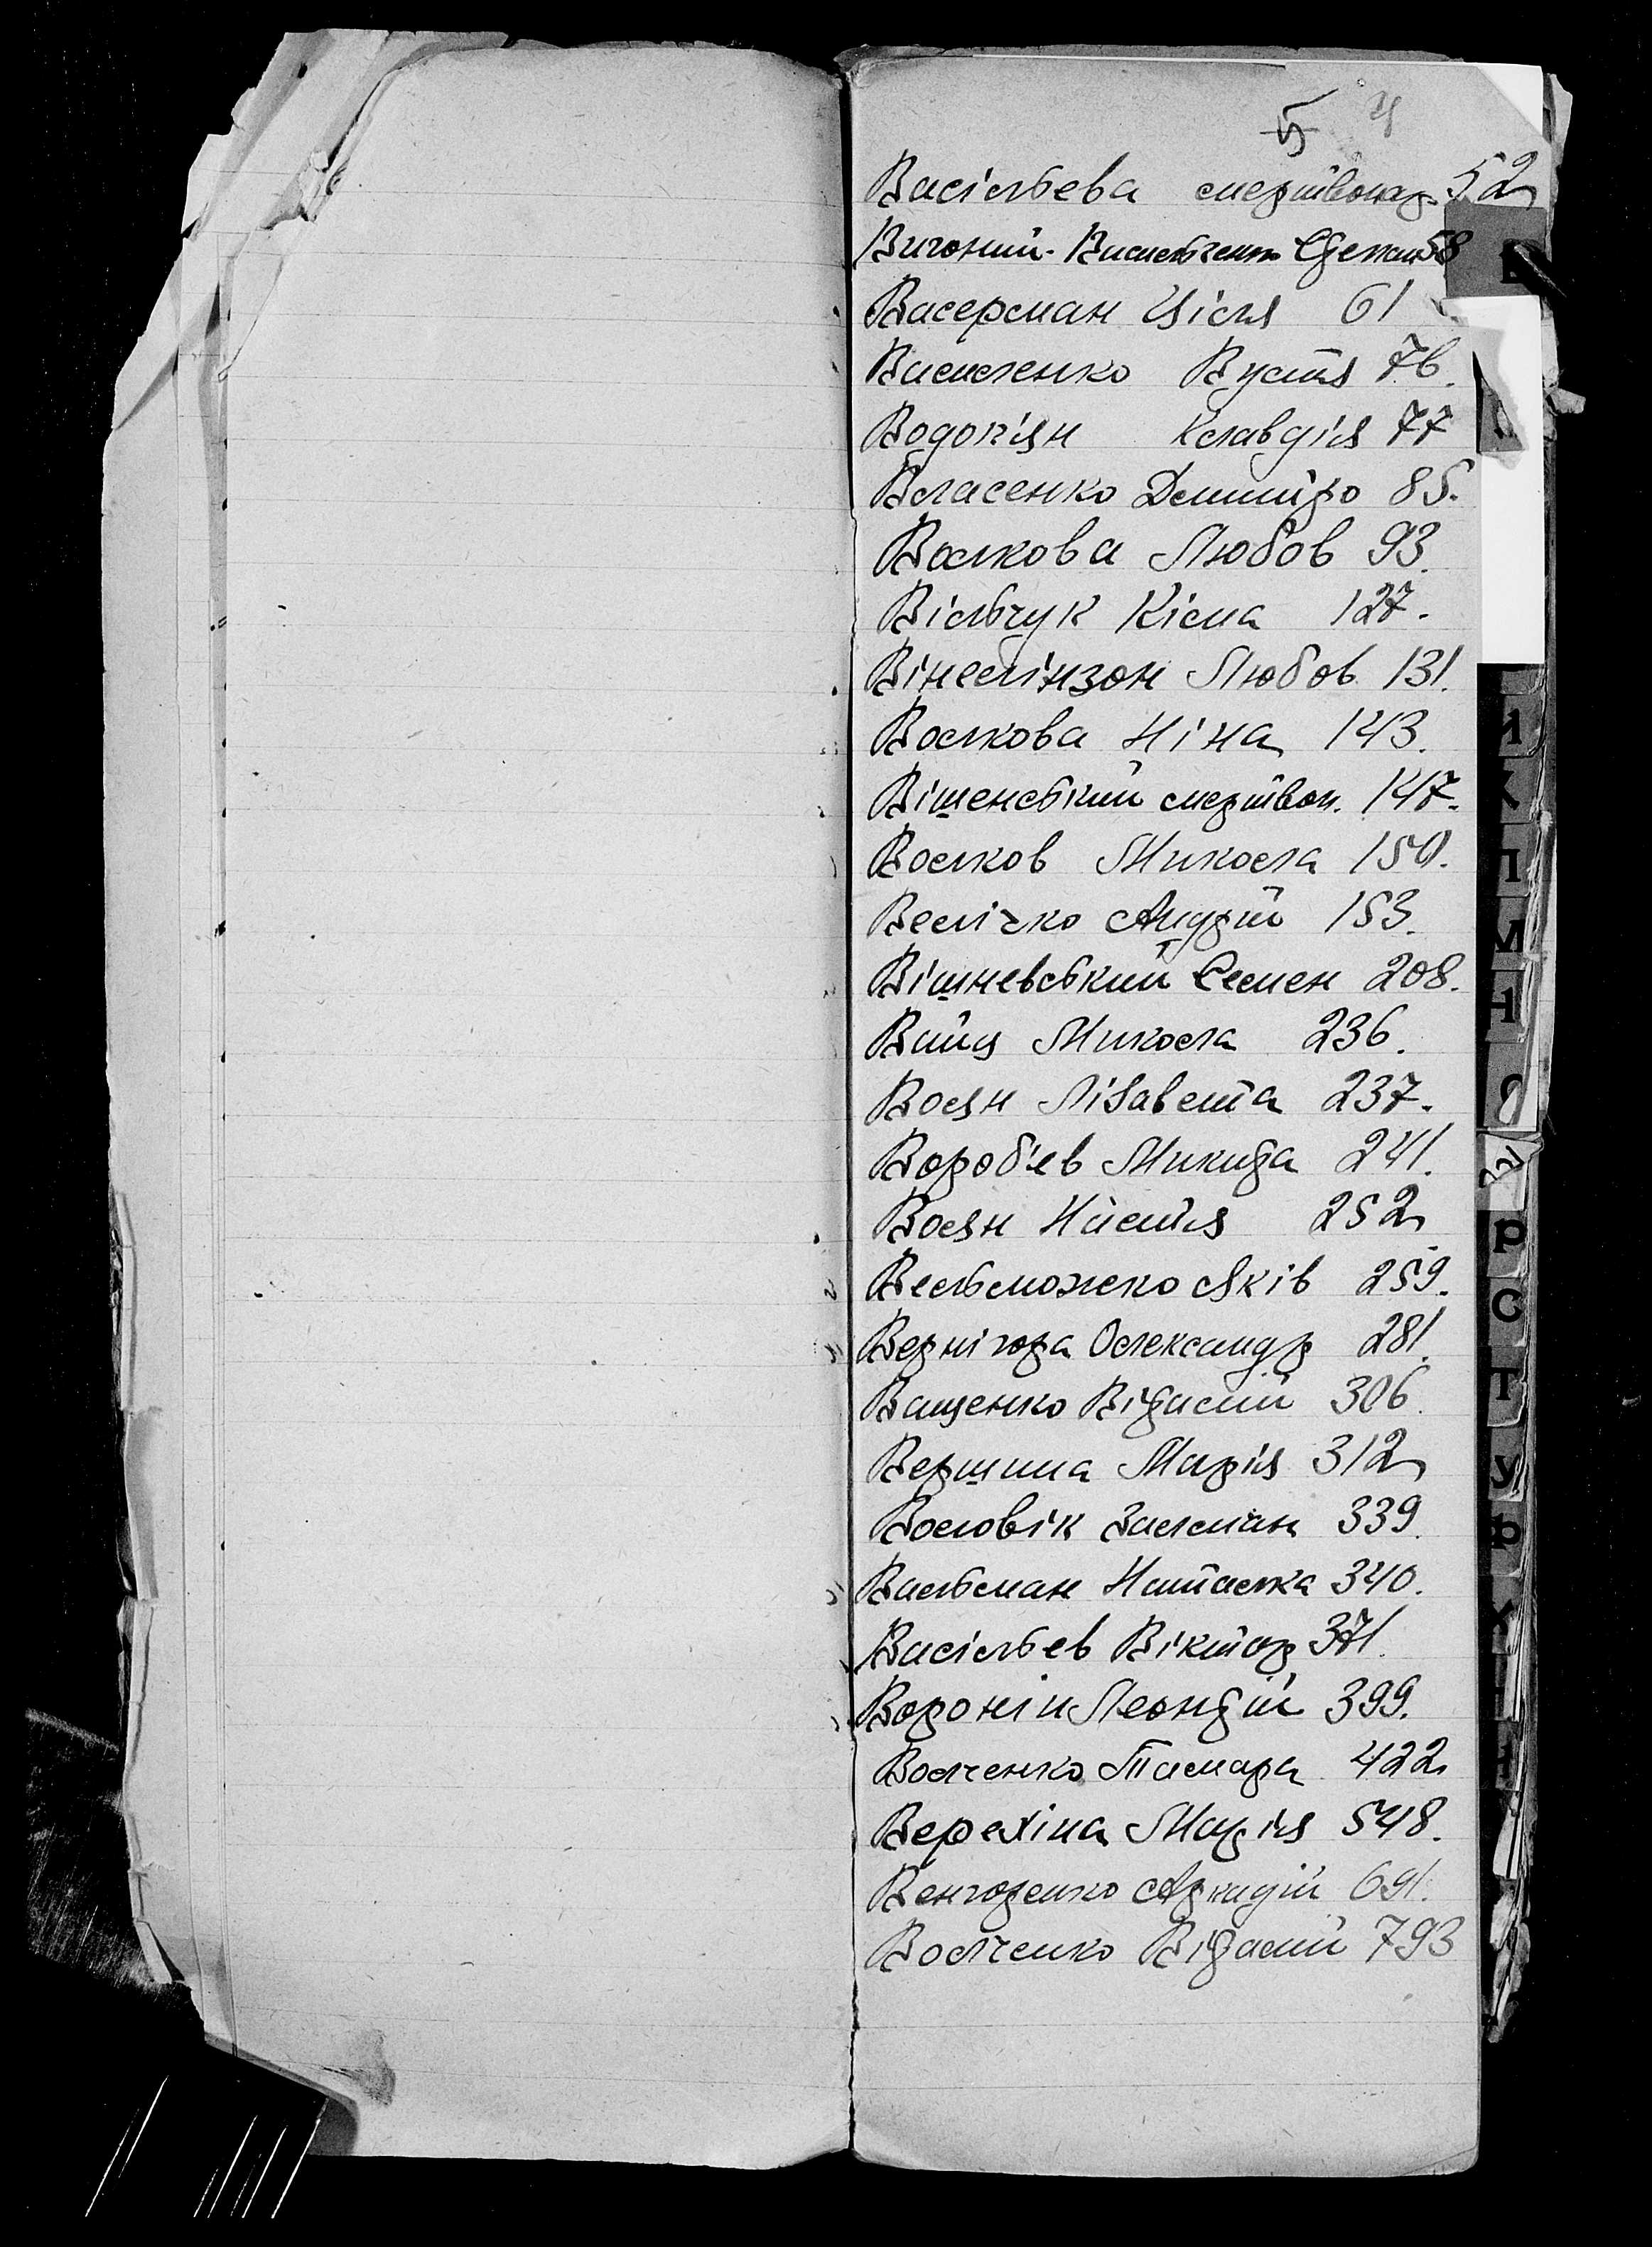 5 4
Васільєва мертвонар. 52
Вигоний-Василевченко Євгенія 58
Васерман Ціля 61
Василенко Вустя 76.
Водопян Клавдія 77
Власенко Дмитро 85.
Волкова Любов 93.
Вільчук Кіма 127.
Вінелінзон Любов 131.
Волкова Ніна 143.
Вішенський мертвон. 147.
Волков Микола 150.
Велічко Андрій 153.
Вішневський Семен 208.
Вайц Микола 236.
Волян Лізавета 237.
Вороб'ев Микита 241.
Волян Настя 252
Вельможко Яків 259.
Вернігора Олександр 281.
Ващенко Віталий 306.
Вершина Марія 312
Воловік Залман 339.
Вальсман Наталка 340.
Васільєв Віктор 371.
Воронін Леонтій 399.
Волченко Тамара 422
Верехіна Марія 548.
Венгоренко Аркадій 691.
Волченко Віталий 793
К
Л
М
Н
О
П
Р
С
Т
У
Ф
Х